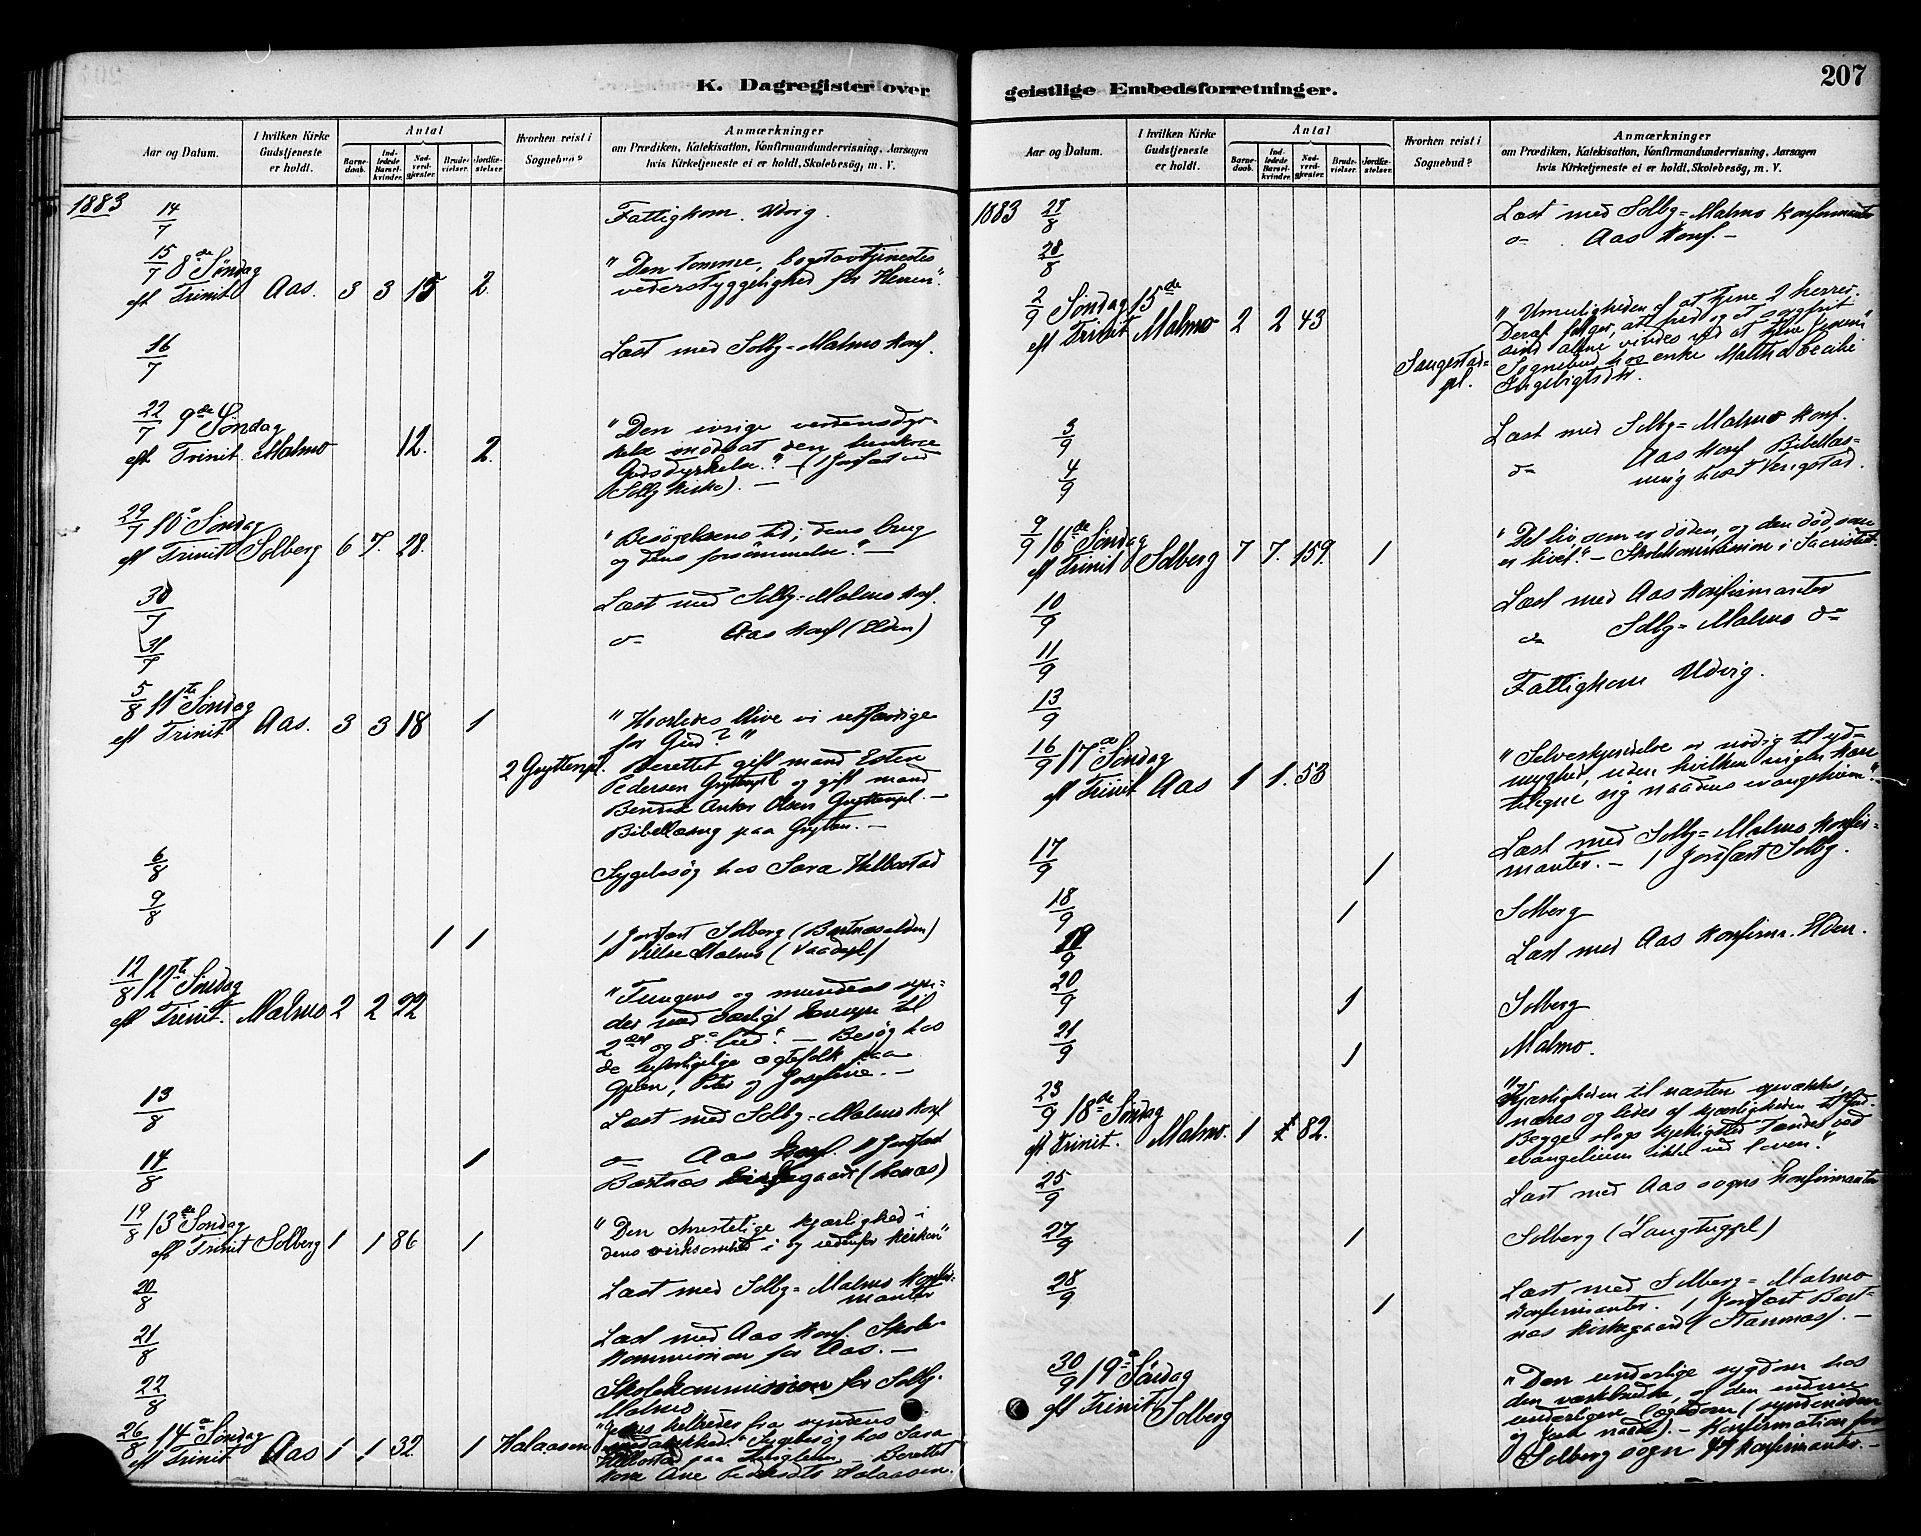 K. Dagregister over
Aar og Datum.
I hvilken Kirke Gudstjeneste er holdt.
Antal
Barnedaab.
Indledede Barselkvinder.
Nadverdgjester.
Brudevielser.
Jordfæstelser.
Hvorhen reist i Sognebud?
Anmærkninger
om Prædiken, Katekisation, Konfirmandundervisning, Aarsagen
hvis Kirketjeneste ei er holdt, Skolebesög, m. V.
1883 14/7 Fattigkom. Udvig.
15/7 8de Søndag "Den tomme, bogstavtjenestes
eft Trinit Aas. 3 3 15 2. vederstyggelighed for Herren".
16/7 Læst med Solbg=Malmo konf.
22/7 9de Søndag "Den ivrige verdensdyr-
eft Trinit. Malmo 12. 2. kelse modsat den
Gudsdyrkelse." — (1 Jordfæst ved
Solbg Kirke). —
29/7 10de Søndag "Besøgelsens tid; dens brug
eft Trinit Solberg 6 7. 28. og dens forsømmelse." —
30/7 Læst med Solbg=Malmo konf.
31/7 do Aas konf (Elden)
5/8 11te Søndag
eft Trinit Aas. 3 3 18 1 "Hvorledes blive vi retfærdige
for Gud?"
2 Gryttenpl. Berettet gift mand Esten
Pedersen Gryttenpl og gift mand
Bendik Anker Olsen Gryttenpl. —
Bibellæsng paa Grytten. —
6/8 Sygebesøg hos Sara Helbostad
9/8 1 1 1 Jordfæst Solberg (Bartnæselden)
1 Vielse Malmo (Vaadapl)
12/8 12te Søndag "Tungens og mundens syn-
eft Trinit. Malmo 2 2 22 der med særligt hensyn til
2det og 8de bud." — Besøg hos
de ægtefolk paa
13/8 Læst med Solbg=Malmo konf
14/8 1 do Aas konf. 1 Jordfæst
Bartnæs Kirkegaard
19/8 13de Søndag "Den christelige kjærlighed i
eft Trinit Solberg 1 1 86 1 dens virksomhed i og udenfor kirken"
20/8 Læst med Solbg=Malmo konfir-
manter
21/8 Læst med Aas konf. Skole-
kommission for Aas. —
22/8 Skolekommission for Solbg.
Malmo.
26/8 14de Søndag "Jesus helbreder fra syndens
eft Trinit Aas 1 1 32. 1 Halaasen Sygebesøg hos Sara
Helbostad paa — Berettet
kone Ane Halaasen.
geistlige Embedsforretninger.
207
Aar og Datum.
I hvilken Kirke Gudstjeneste er holdt.
Antal
Barnedaab.
Indledede Barselkvinder.
Nadverdgjester.
Brudevielser.
Jordfæstelser.
Hvorhen reist i Sognebud?
Anmærkninger
om Prædiken, Katekisation, Konfirmandundervisning, Aarsagen
hvis Kirketjeneste ei er holdt, Skolebesög, m. V.
1883 27/8 Læst med Solbg=Malmo konfirmanter
28/8 do Aas konf. —
2/9 Søndag 15de "Umuligheden af at tjene 2 herrer.
eft Trinit Malmo 2 2 43 Deraf følger, at fred og et sorgfrit
sind alene vindes ved at tjene Herren"
Saugestad= pl. Sognebud hos enke Martha Cecilie
Ingebrigtsdtr.
3/9 Læst med Solbg=Malmo konf.
4/9 do Aas konf Bibellæs-
ning
9/9 16de Søndag "Det liv, som er døden, og den død, som
eft Trinit Solberg 7 7. 159. 1 er livet". — Skolekommission i Sacristiet.
10/9 Læst med Aas konfirmanter
11/9 do Solbg=Malmo do
13/9 Fattigkom Udvig.
16/9 17de Søndag "Selverkjendelse er nødig til yd-
eft Trinit Aas 1 1. 53 myghed, uden hvilken ingen kan
tilegne sig naadens evangelium".
17/9 1 Læst med Solbg=Malmo konfir-
manter. — 1 Jordfæst Solbg.
18/9 1 Solberg
19/9 Læst med Aas konfirm. Elden.
20/9 1 Solberg
21/9 1 Malmo.
23/9 18de Søndag "Kjærligheden til næsten opvækkes,
eft Trinit. Malmo. 1 1 82. næres og ledes af kjærligheden til Gud.
Begge slags kjerlighed tændes ved
evangelium, ikke ved loven".
25/9 Læst med Aas sogns konfirmanter
27/9 1 Solberg (Langtugpl)
28/9 1 Læst med Solberg=Malmo
konfirmanter. 1 Jordfæst Bart-
næs kirkegaard —
30/9 19de Søndag "Den underlige sygdom hos
eft Trinit Solberg den værkbrudne, og den endnu
underligere lægedom (synderinden
og Guds naade). — Konfirmation for
Solberg sogn 44 konfirmanter. —